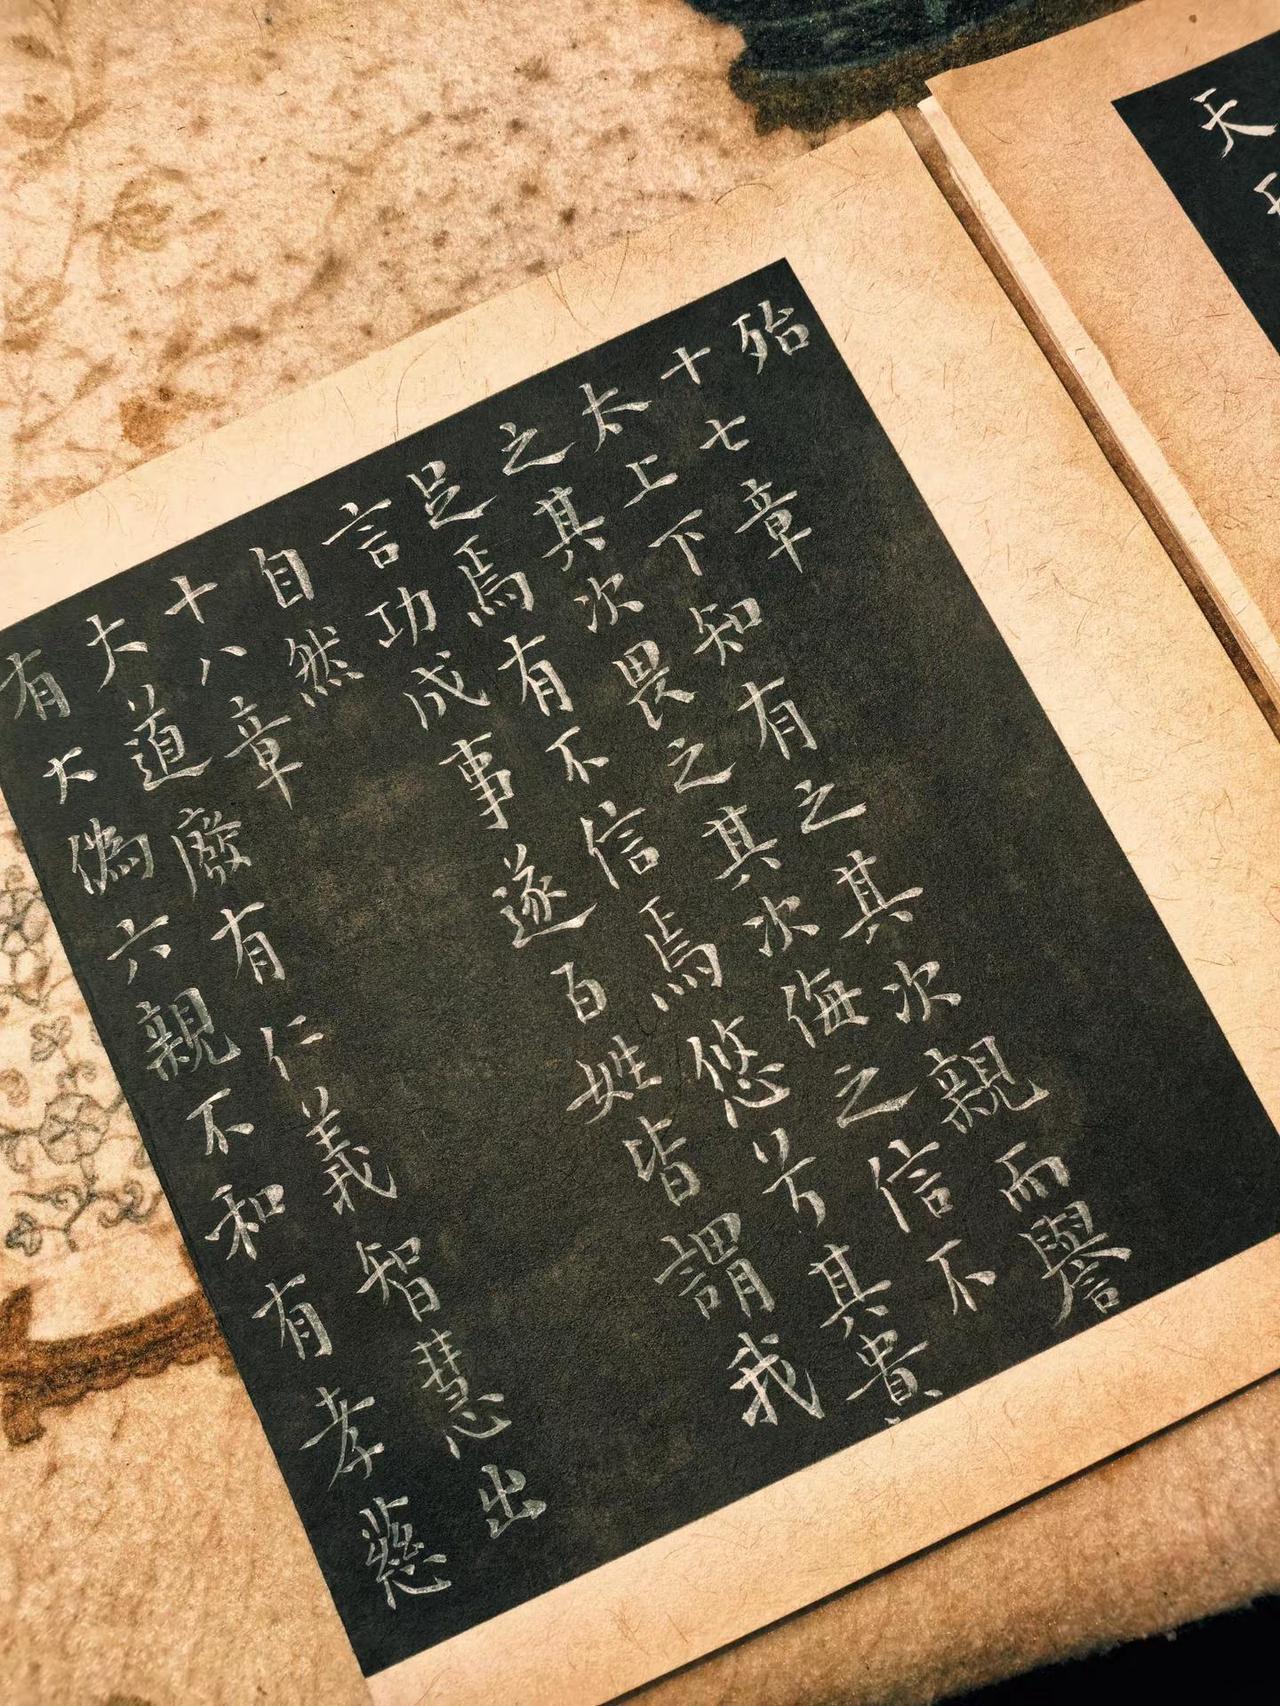 天
殆
十七章
太上下知有之其次親而譽
之其次畏之其次侮之信不
足焉有不信焉悠兮其貴
言功成事遂百姓皆謂我
自然
十八章
大道廢有仁義智慧出
有大偽六親不和有孝慈